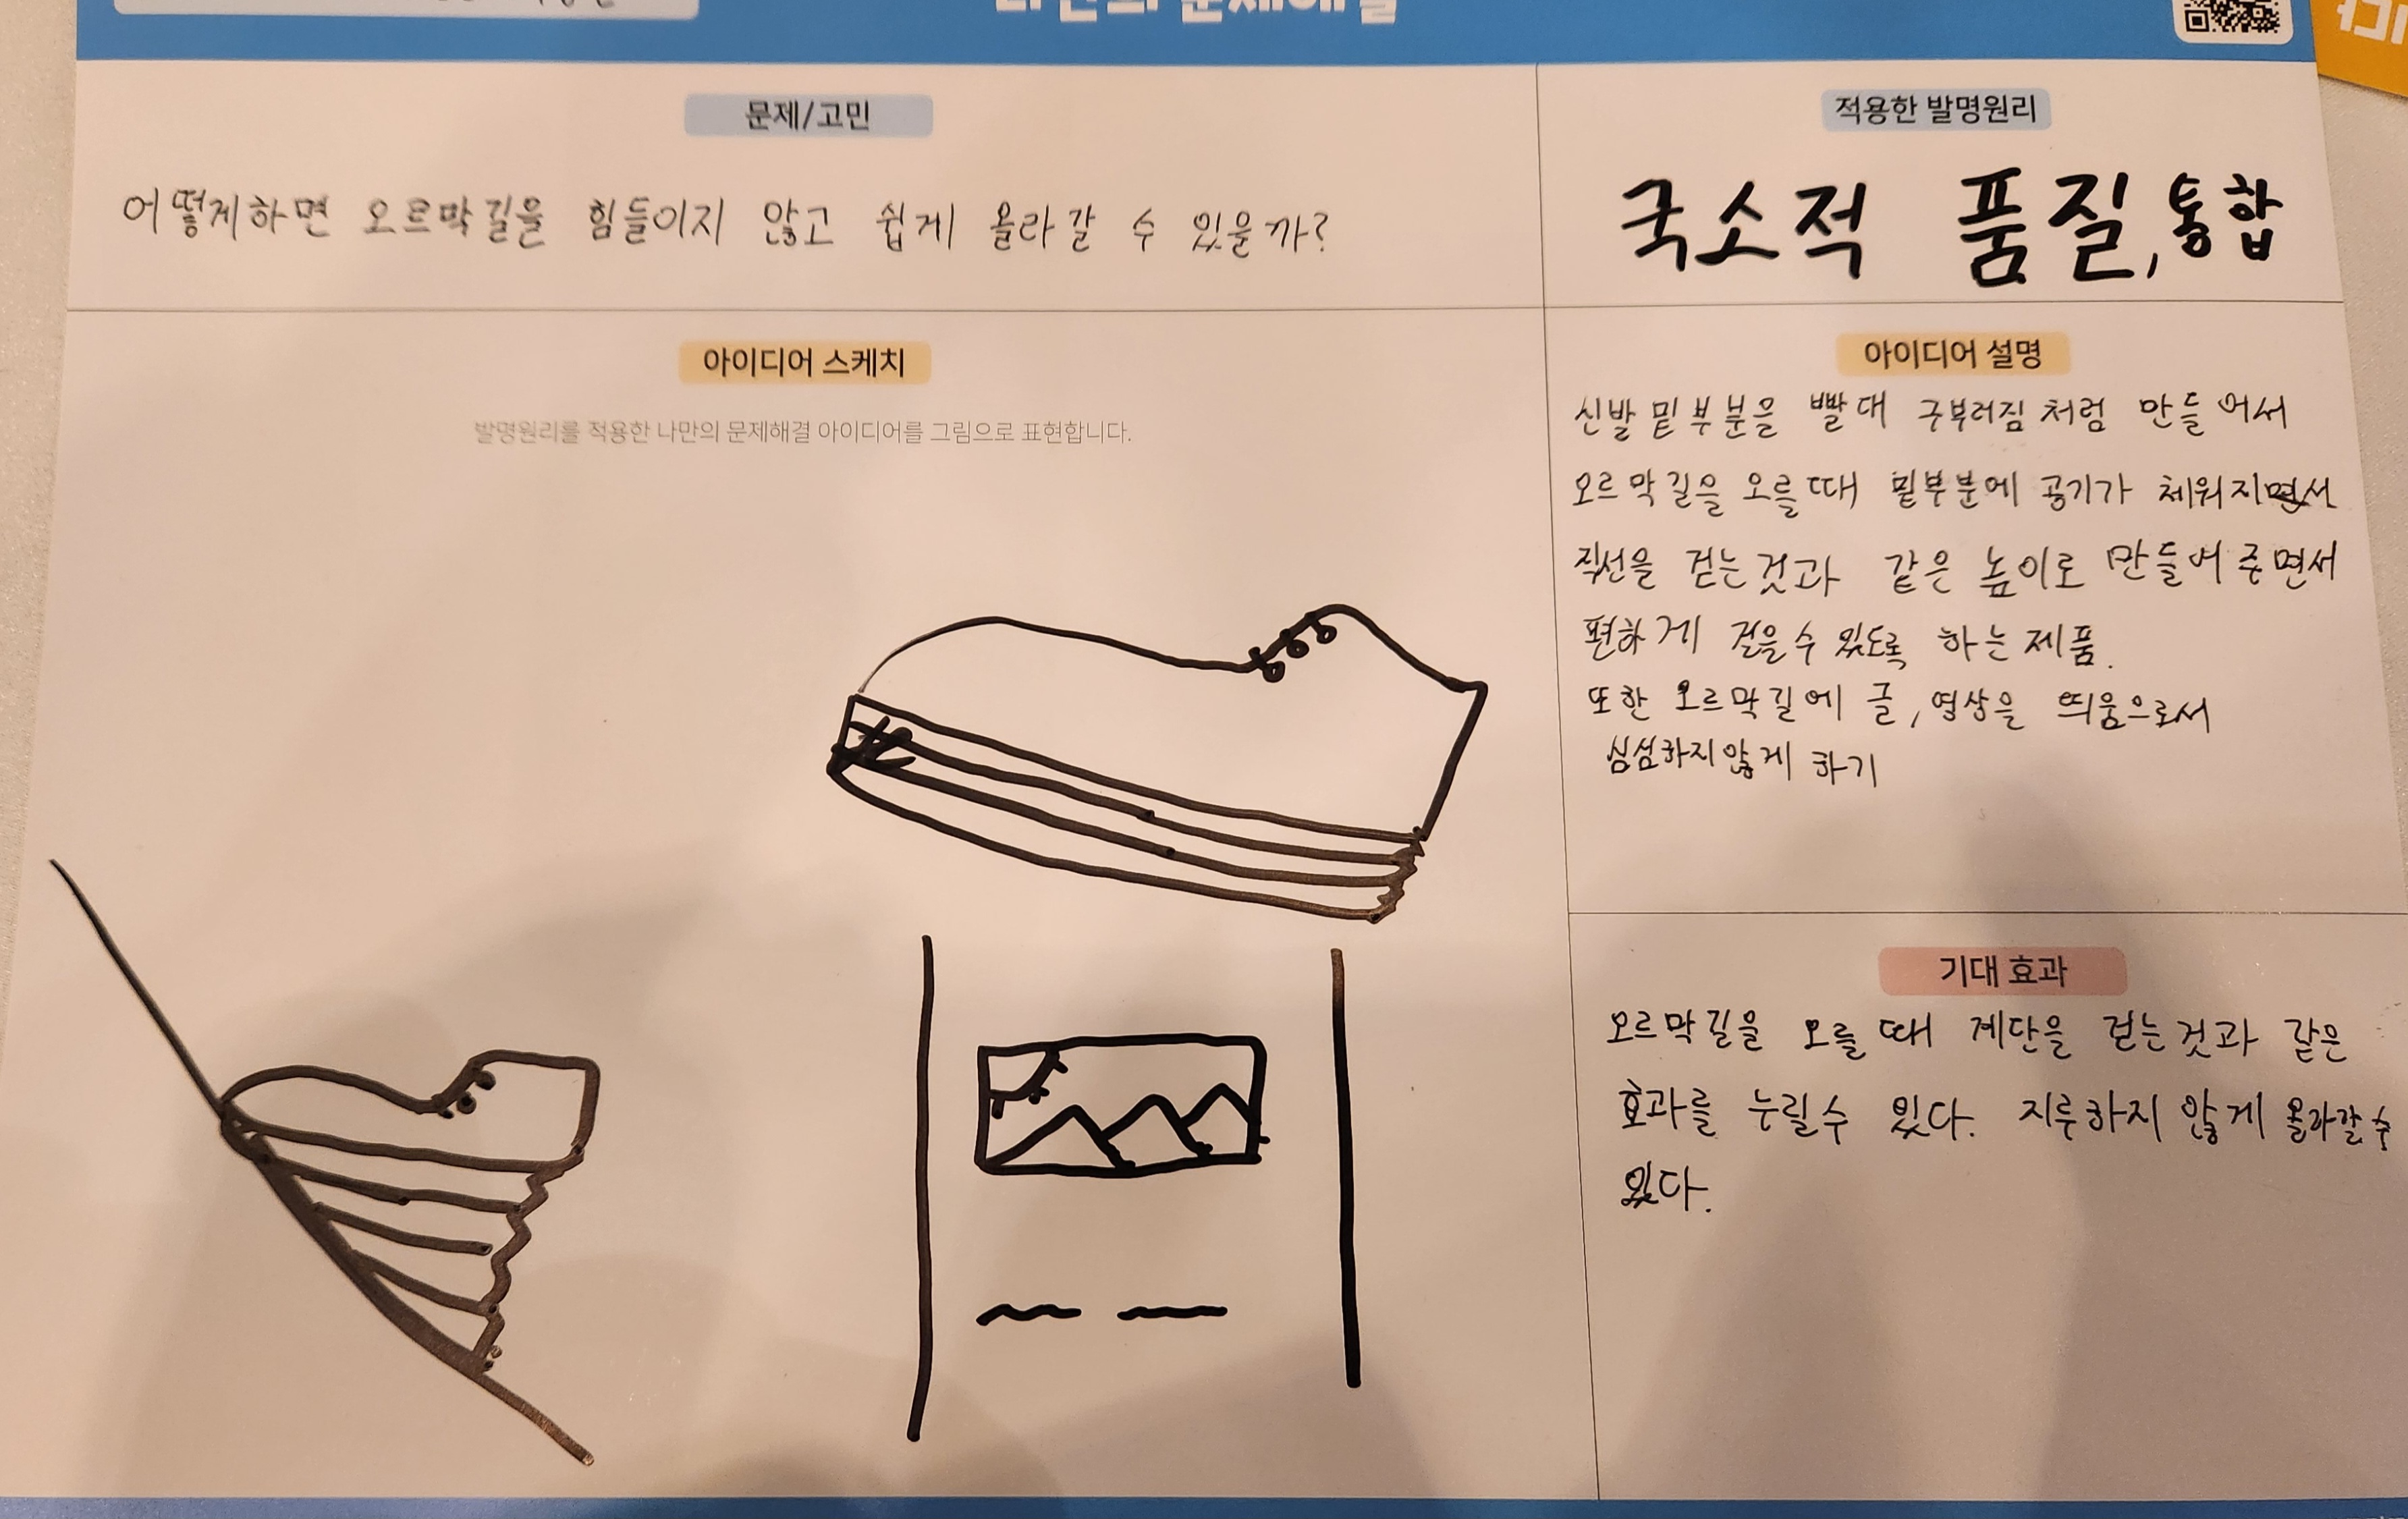 나만의 문제해결
문제/고민
어떻게하면 오르막길을 힘들이지 않고 쉽게 올라갈 수 있을까?
적용한 발명원리
국소적 품질, 통합
아이디어 스케치
발명원리를 적용한 나만의 문제해결 아이디어를 그림으로 표현합니다.
아이디어 설명
신발 밑부분을 빨대 구부러짐처럼 만들어서
오르막길을 오를때 밑부분에 공기가 체워지면서
직선을 걷는것과 같은 높이로 만들어 주면서
편하게 걸을수 있도록 하는 제품.
또한 오르막길에 글, 영상을 띄움으로서
심심하지않게 하기
기대 효과
오르막길을 오를 때 계단을 걷는것과 같은
효과를 누릴수 있다. 지루하지 않게 올라갈 수
있다.